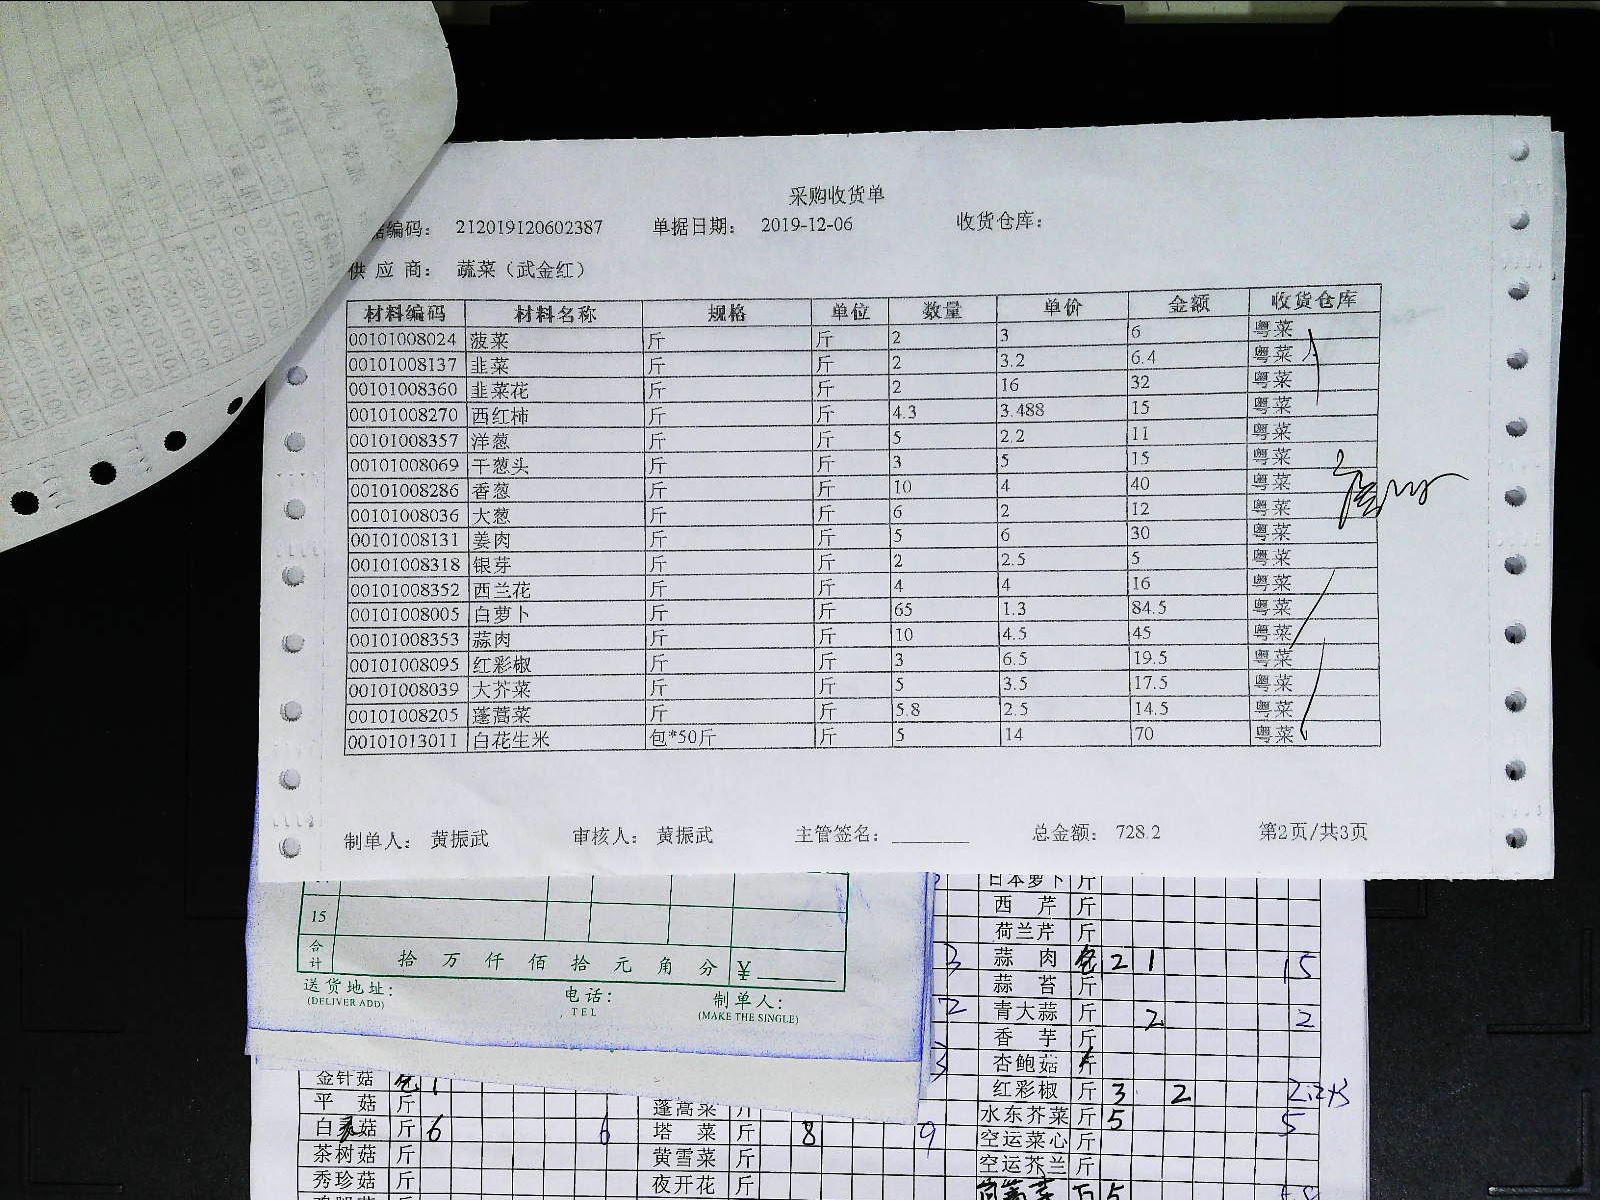 采购收货单
编码： 212019120602387 单据日期： 2019-12-06 收货仓库：
供 应 商： 蔬菜（武金红）
材料编码 材料名称 规格 单位 数量 单价 金额 收货仓库
00101008024 菠菜 斤 斤 2 3 6 粤菜
00101008137 韭菜 斤 斤 2 3.2 6.4 粤菜
00101008360 韭菜花 斤 斤 2 16 32 粤菜
00101008270 西红柿 斤 斤 4.3 3.488 15 粤菜
00101008357 洋葱 斤 斤 5 2.2 11 粤菜
00101008069 干葱头 斤 斤 3 5 15 粤菜
00101008286 香葱 斤 斤 10 4 40 粤菜
00101008036 大葱 斤 斤 6 2 12 粤菜
00101008131 姜肉 斤 斤 5 6 30 粤菜
00101008318 银芽 斤 斤 2 2.5 5 粤菜
00101008352 西兰花 斤 斤 4 4 16 粤菜
00101008005 白萝卜 斤 斤 65 1.3 84.5 粤菜
00101008353 蒜肉 斤 斤 10 4.5 45 粤菜
00101008095 红彩椒 斤 斤 3 6.5 19.5 粤菜
00101008039 大芥菜 斤 斤 5 3.5 17.5 粤菜
00101008205 蓬蒿菜 斤 斤 5.8 2.5 14.5 粤菜
00101013011 白花生米 包*50斤 斤 5 14 70 粤菜
制单人： 黄振武 审核人： 黄振武 主管签名：________ 总金额： 728.2 第2页/共3页
15
合计 拾 万 仟 佰 拾 元 角 分 ¥
送货地址： 电话： 制单人：
(DELIVER ADD) TEL (MAKE THE SINGLE)
日本萝卜 斤
西 芹 斤
荷兰芹 斤
3 蒜 肉 包 2 1 15
蒜 苔 斤
2 青大蒜 斤 2 2
香 芋 斤
3 杏鲍菇
红彩椒 斤 3 2
水东芥菜 斤 5 5
空运菜心 斤
空运芥兰 斤
5
金针菇 包 1
平 菇 斤
白 菇 斤 6 6
茶树菇 斤
秀珍菇 斤
蓬蒿菜 斤
塔 菜 斤 8 9
黄雪菜 斤
夜开花 斤